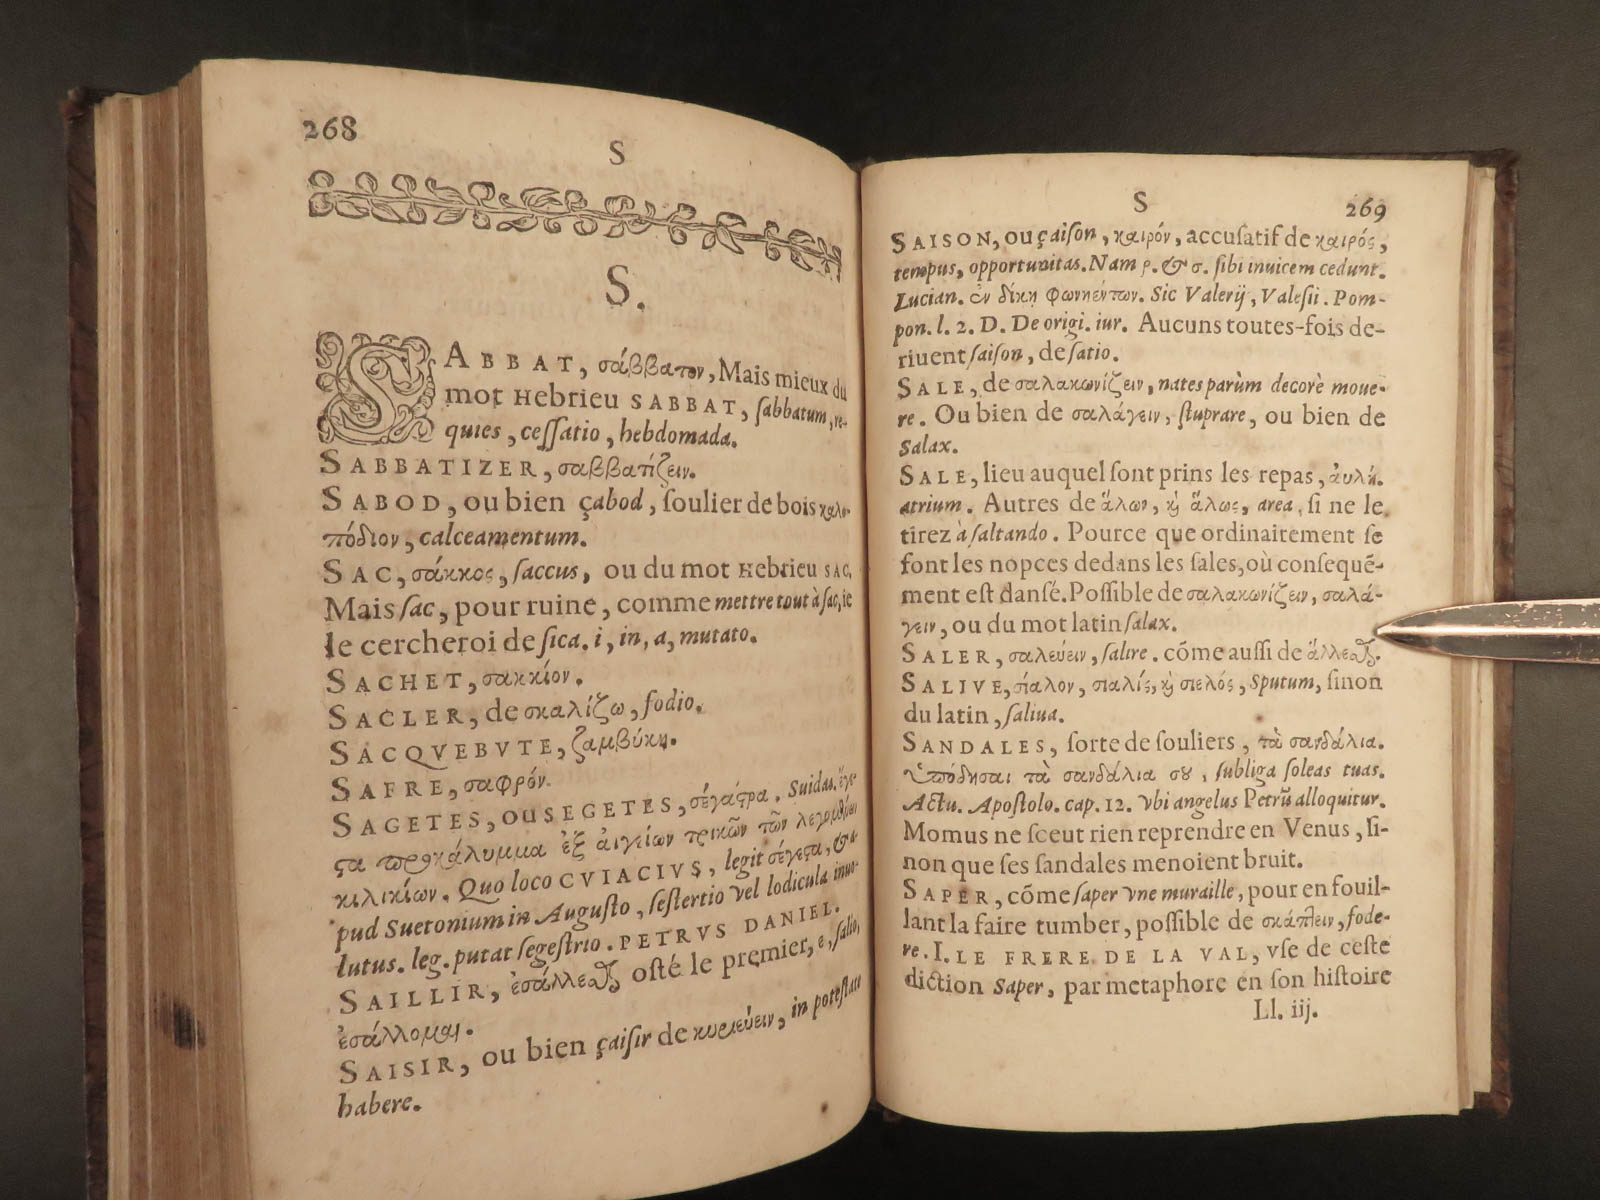 268
S
S.
SABBAT, σάββατον, Mais mieux du
mot Hebrieu SABBAT, ſabbatum, re-
quies, ceſſatio, hebdomada.
SABBATIZER, σαββατίζειν.
SABOD, ou bien çabod, ſoulier de bois καλο-
πόδιον, calceamentum.
SAC, σάκκος, ſaccus, ou du mot Hebrieu SAC,
Mais ſac, pour ruine, comme mettre tout à ſac, ie
le cercheroi de ſica. i, in, a, mutato.
SACHET, σακκίον.
SACLER, de σκαλίζω, fodio.
SACQVEBVTE, ζαμβύκη.
SAFRE, σαφρόν.
SAGETES, OU SEGETES, σέγαςρα. Suidas.
ςα προκάλυμμα ἐξ αἰγείων τριχῶν τῶν λεγομένων
κιλικίων. Quo loco CVIACIVS, legit σέγεςα, & a-
pud Suetonium in Auguſto, ſeſtertio vel lodicula inuo-
lutus. leg. putat ſegeſtrio. PETRVS DANIEL.
SAILLIR, ἐσάλλεϑ oſté le premier, e, ſalio,
ἐσάλλομαι.
SAISIR, ou bien çaiſir de κυριεύειν, in poteſtate
habere.
S
269
SAISON, ou çaiſon, καιρόν, accuſatif de καιρός,
tempus, opportunitas. Nam ρ. & σ. ſibi inuicem cedunt.
Lucian. ἐν δίκη φωνηέντων. Sic Valerij, Valeſii. Pom-
pon. l. 2. D. De origi. iur. Aucuns toutes-fois de-
riuent ſaiſon, de ſatio.
SALE, de σαλακωνίζειν, nates parùm decorè moue-
re. Ou bien de σαλάγειν, ſtuprare, ou bien de
Salax.
SALE, lieu auquel ſont prins les repas, ἀυλή.
atrium. Autres de ἅλων, ϗ ἅλως, area, ſi ne le
tirez à ſaltando. Pource que ordinairement ſe
font les nopces dedans les ſales, où conſequē-
ment eſt danſé. Poſſible de σαλακωνίζειν, σαλά-
γειν, ou du mot latin ſalax.
SALER, σαλεύειν, ſalire. cōme auſſi de ἅλλεϑ.
SALIVE, σίαλον, σιαλίς, ϗ σιελός, Sputum, ſinon
du latin, ſaliua.
SANDALES, ſorte de ſouliers, τὰ σανδάλια.
Ὑπόδησαι τὰ σανδάλια σου, ſubliga ſoleas tuas.
Actu. Apoſtolo. cap. 12. vbi angelus Petrū alloquitur.
Momus ne ſceut rien reprendre en Venus, ſi-
non que ſes ſandales menoient bruit.
SAPER, cōme ſaper vne muraille, pour en fouil-
lant la faire tumber, poſſible de σκάπτειν, fode-
re. I. LE FRERE DE LA VAL, vſe de ceſte
diction Saper, par metaphore en ſon hiſtoire
Ll. iij.